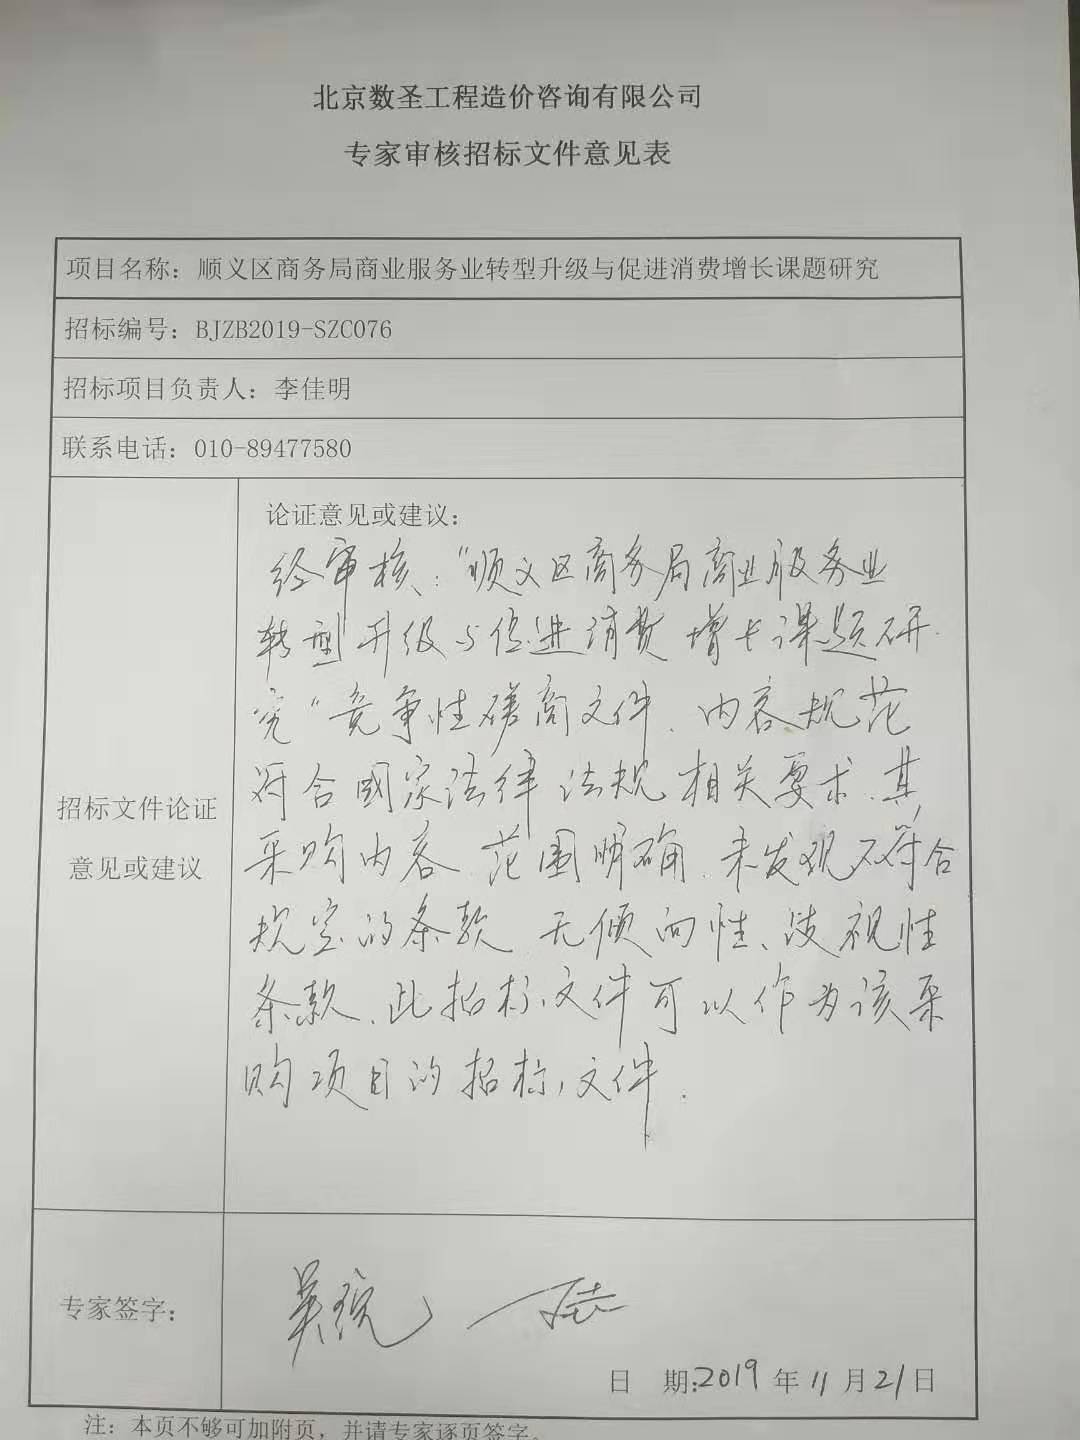 北京数圣工程造价咨询有限公司
专家审核招标文件意见表
项目名称：顺义区商务局商业服务业转型升级与促进消费增长课题研究
招标编号：BJZB2019-SZC076
招标项目负责人：李佳明
联系电话：010-89477580
招标文件论证
意见或建议
论证意见或建议：
经审核："顺义区商务局商业服务业
转型升级与促进消费增长课题研
究"竞争性磋商文件、内容规范
符合國家法律法规相关要求、其
采购内容、范围明确、未发现不符合
规定的条款、无倾向性、歧视性
条款、此招标文件可以作为该采
购项目的招标文件.
专家签字：
日 期:2019年11月21日
注：本页不够可加附页，并请专家逐页签字。